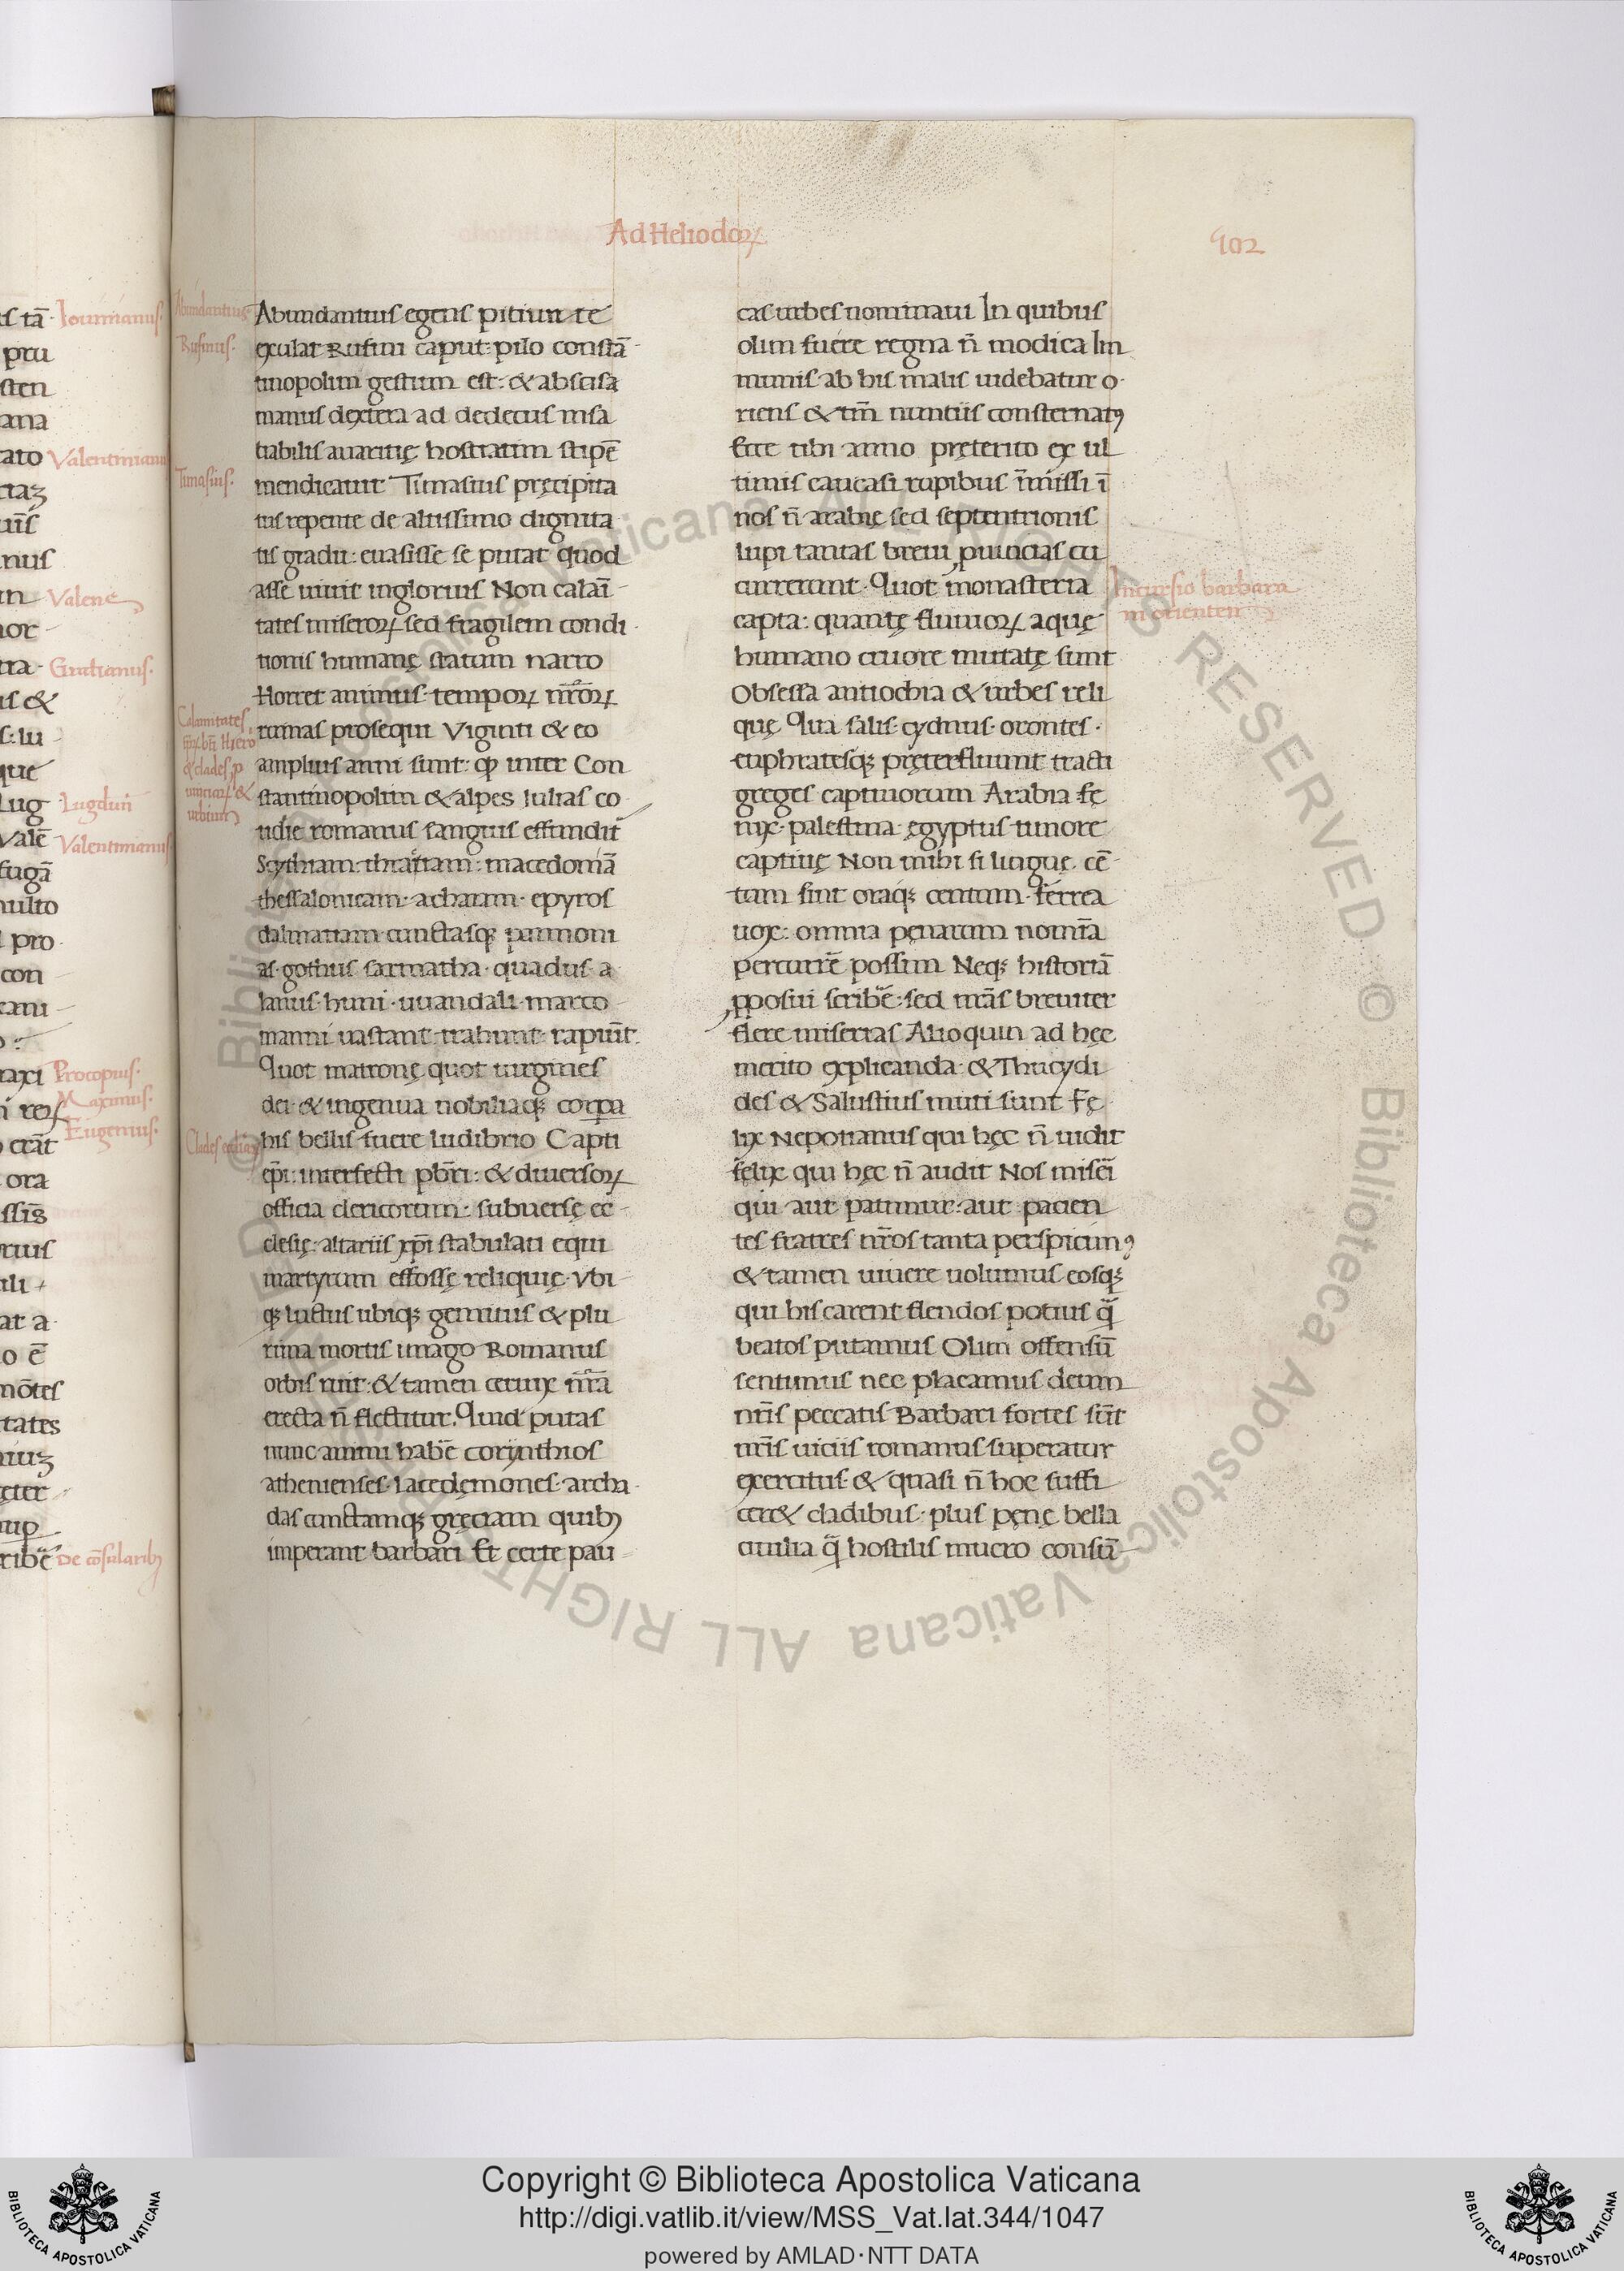 Ad Heliodoꝝ
902
Abundantius egens pitiunte
exulat Rufini caput: pilo constā
tinopolim gestum est: & abscisa
manus dextera ad dedecus insa
tiabilis auaritię hostiatim stipē
mendicauit Timasius pręcipita
tus repente de altissimo dignita
tis gradu: euasisse se putat quod
asse uiuit inglorius Non calaī
tates miseroꝝ sed fragilem condi
tionis humanę statum narro
Horret animus tempoꝝ nr̄oꝝ
ruinas prosequi Viginti & eo
amplius anni sunt: ꝙ inter Con
stantinopolim & alpes Iulias co
tidie romanus sanguis effundit̄
Scythiam thraciam: macedoniā
thessalonicam achaiam epyros
dalmatiam cunctasqꝫ pannoni
as gothus sarmatha quadus a
lanus huni uuandali marco
manni uastant trahunt rapiūt
Quot matronę quot uirgines
dei & ingenua nobiliaqꝫ corpa
his bellis fuere ludibrio Capti
ep̄i: interfecti pb̄ri: & diuersoꝝ
officia clericorum: subuersę ec
clesię: altariis xp̄i stabulati equi
martyrum effossę reliquię Vbi
qꝫ luctus ubiqꝫ gemitus & plu
rima mortis imago Romanus
orbis ruit & tamen ceruix nr̄a
erecta n̄ flectitur. Quid putas
nunc animi habē corynthios
athenienses lacedęmones archa
das cunctamqꝫ gręciam quibꝰ
imperant barbari Et certe pau
cas urbes nominaui In quibus
olim fuere regna n̄ modica Im
munis ab his malis uidebatur o
riens & tm̄ nuntiis consternatꝰ
Ecce tibi anno pręterito ex ul
timis caucasi rupibus īmissi ī
nos n̄ arabię sed septentrionis
lupi tantas breui ꝓuincias cu
currerunt Quot monasteria
capta: quantę fluuioꝝ aquę
humano cruore mutatę sunt
Obsessa antiochia & urbes reli
quę Qua salis cydnus orontes
euphratesqꝫ pręterfluunt tracti
greges captiuorum Arabia fę
nix palestina ęgyptus timore
captiuę Non mihi si linguę cē
tum sint oraqꝫ centum ferrea
uox: omnia pęnarum nomīa
percurrē possim Neqꝫ historiā
ꝓposui scribē: sed nr̄as breuiter
flere miserias Alioquin ad hęc
merito explicanda & Thucydi
des & Salustius muti sunt Fę
lix Nepotianus qui hęc n̄ uidit
felix qui hęc n̄ audit Nos misei
qui aut patimur: aut pacien
tes fratres nr̄os tanta perspicimꝰ
& tamen uiuere uolumus eosqꝫ
qui his carent flendos potius q̄
beatos putamus Olim offensū
sentimus nec placamus deum
nr̄is peccatis Barbari fortes sūt
nr̄is uiciis romanus superatur
exercitus & quasi n̄ hoc suffi
cer& cladibus plus pęnę bella
ciuilia q̄ hostilis mucro consū
Abundantius
Rufinus
Timasius
Calamitates
tp̄r̄ bt̄i Hiero
& clades ꝓ
uinciaꝝ &
urbium
Incursio barbara
in orientem
Iouinianus
Valentinianus
Valens
Gratianus
Lugdun̄
Valentinianus
Procopius
Maximus
Eugenius
De cōsularibꝰ
Copyright © Biblioteca Apostolica Vaticana
http://digi.vatlib.it/view/MSS_Vat.lat.344/1047
powered by AMLAD·NTT DATA
BIBLIOTECA APOSTOLICA VATICANA
BIBLIOTECA APOSTOLICA VATICANA
© Biblioteca Apostolica Vaticana ALL RIGHTS RESERVED © Biblioteca Apostolica Vaticana ALL RIGHTS RESERVED